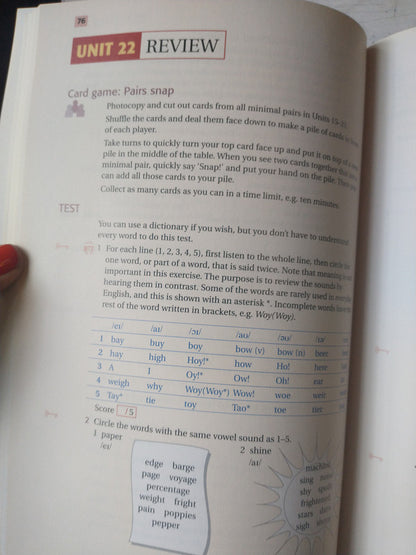 76
UNIT 22 REVIEW
Card game: Pairs snap
Photocopy and cut out cards from all minimal pairs in Units 15–21.
Shuffle the cards and deal them face down to make a pile of cards in
of each player.
Take turns to quickly turn your top card face up and put it on top of a
pile in the middle of the table. When you see two cards together that
minimal pair, quickly say 'Snap!' and put your hand on the pile. Then
can add all those cards to your pile.
Collect as many cards as you can in a time limit, e.g. ten minutes.
TEST
You can use a dictionary if you wish, but you don't have to understand
every word to do this test.
1 For each line (1, 2, 3, 4, 5), first listen to the whole line, then circle the
one word, or part of a word, that is said twice. Note that meaning is not
important in this exercise. The purpose is to review the sounds by
hearing them in contrast. Some of the words are rarely used in everyday
English, and this is shown with an asterisk *. Incomplete words have the
rest of the word written in brackets, e.g. Woy(Woy).
/eɪ/ /aɪ/ /ɔɪ/ /aʊ/ /əʊ/ /ɪə/
1 bay buy boy bow (v) bow (n) beer
2 hay high Hoy!* how Ho! here
3 A I Oy!* Ow! Oh! ear
4 weigh why Woy(Woy*) Wow! woe weir
5 Tay* tie toy Tao* toe tier
Score /5
2 Circle the words with the same vowel sound as 1–5.
1 paper 2 shine
/eɪ/ /aɪ/
edge barge
page voyage
percentage
weight fright
pain poppies
pepper
machine
sing
shy
frightened
stars
sigh